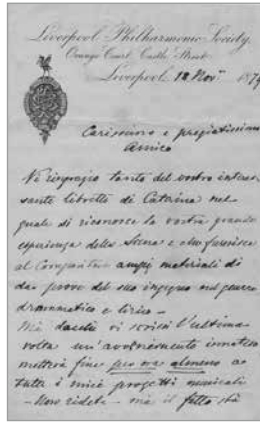 Liverpool Philharmonic Society,
Orange Court, Castle Street
Liverpool, 12 Nov.r 1879
Carissimo e pregiatissimo
Amico
Vi ringrazio tanto del vostro interes
sante libretto di Caterina nel
quale si riconosce la vostra grande
esperienza della Scena e che fornisce
al Compositore ampii materiali di
dar prove del suo ingegno nel genere
drammatico e lirico —
Ma dacchè vi scrissi l'ultima
volta un'avvenimento inatteso
metterà fine per ora almeno a
tutti i miei progetti musicali
— Non ridete — ma il fatto stà